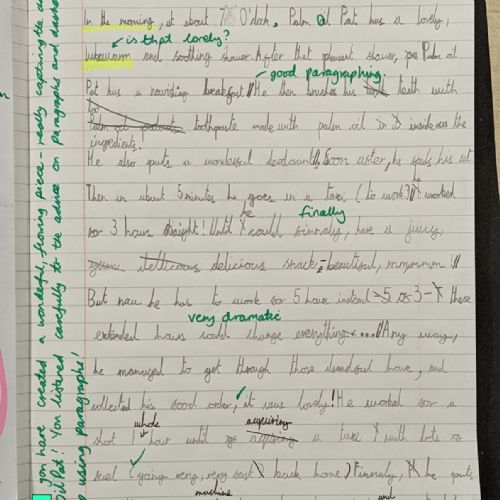 In the morning, at about 7 O'clock, Palm Oil Pat has a lovely,
is that lovely?
lukewarm and soothing shower. After that pleasant shower, Palm oil
good paragraphing.
Pat has a nourishing breakfast // He then brushes his teeth with
toothpaste made with palm oil in it inside as the
ingredients.
He also puts a wonderful deodorant // Soon after, he feeds his cat
he
Then in about 5 minutes he goes in a taxi (to work) // worked
he finally
for 3 hours straight! Until could finnaly, have a juicy,
delicious snack - beautiful, mmmmm! //
But now he has to work for 5 hours instead of 3 - these
very dramatic
extended hours could change everything .... // Any way,
he managed to get through those dreadful hours, and
collected his food order, it was lovely! He worked for a
whole acquiring
short 1 hour until a taxi with lots of
fuel (going very, very fast) back home. Finnaly, he puts
machine and
you have created a wonderful, flowing piece - really capturing the
Oil Pat! You listened carefully to the advice on paragraphs and
using paragraphs!